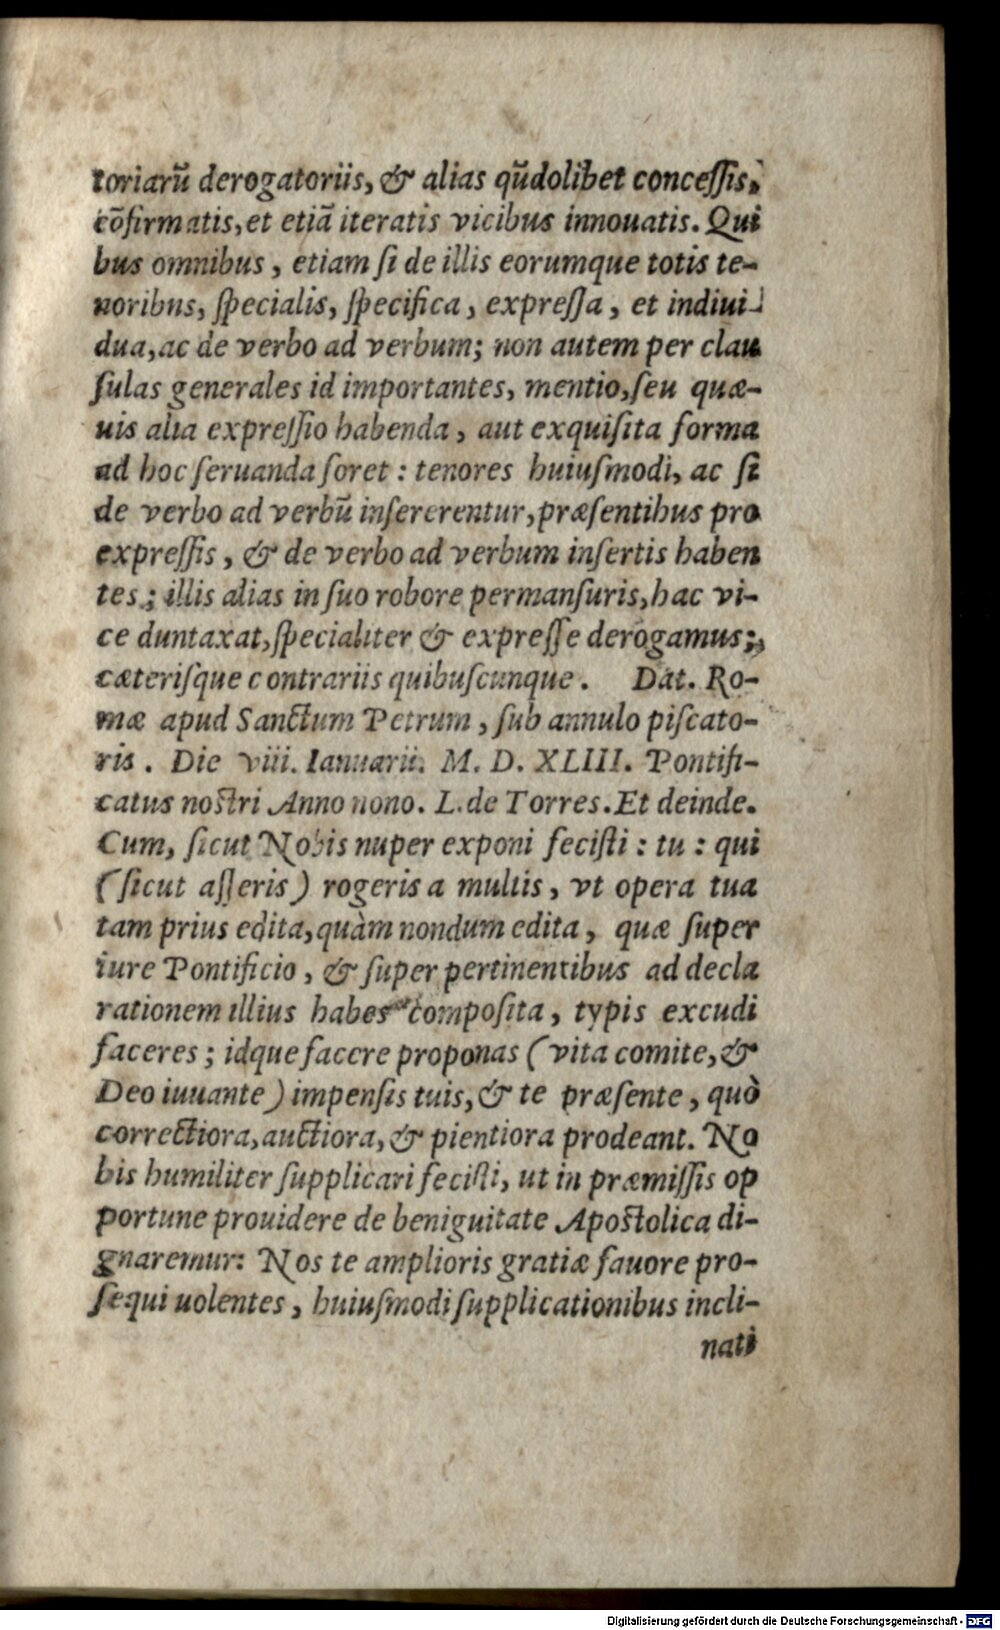 toriarũ derogatoriis, & alias qũdolibet conceſſis,
cōfirmatis, et etiā iteratis vicibus innouatis. Qui
bus omnibus, etiam ſi de illis eorumque totis te-
noribus, ſpecialis, ſpecifica, expreſſa, et indiui-
dua, ac de verbo ad verbum; non autem per clau
ſulas generales id importantes, mentio, ſeu quæ-
uis alia expreſſio habenda, aut exquiſita forma
ad hoc ſeruanda foret: tenores huiuſmodi, ac ſi
de verbo ad verbũ inſererentur, præſentibus pro
expreſſis, & de verbo ad verbum inſertis haben
tes; illis alias in ſuo robore permanſuris, hac vi-
ce duntaxat, ſpecialiter & expreſſe derogamus;
cæteriſque contrariis quibuſcunque. Dat. Ro-
mæ apud Sanctum Petrum, ſub annulo piſcato-
ris. Die viii. Ianuarii. M. D. XLIII. Pontifi-
catus noſtri Anno nono. L. de Torres. Et deinde.
Cum, ſicut Nobis nuper exponi feciſti: tu: qui
(ſicut aſſeris) rogeris a multis, vt opera tua
tam prius edita, quàm nondum edita, quæ ſuper
iure Pontificio, & ſuper pertinentibus ad decla
rationem illius habes compoſita, typis excudi
faceres; idque facere proponas (vita comite, &
Deo iuuante) impenſis tuis, & te præſente, quò
correctiora, auctiora, & pientiora prodeant. No
bis humiliter ſupplicari feciſti, ut in præmiſſis op
portune prouidere de beniguitate Apoſtolica di-
gnaremur: Nos te amplioris gratiæ fauore pro-
ſequi uolentes, huiuſmodi ſupplicationibus incli-
nati
Digitalisierung gefördert durch die Deutsche Forschungsgemeinschaft - DFG